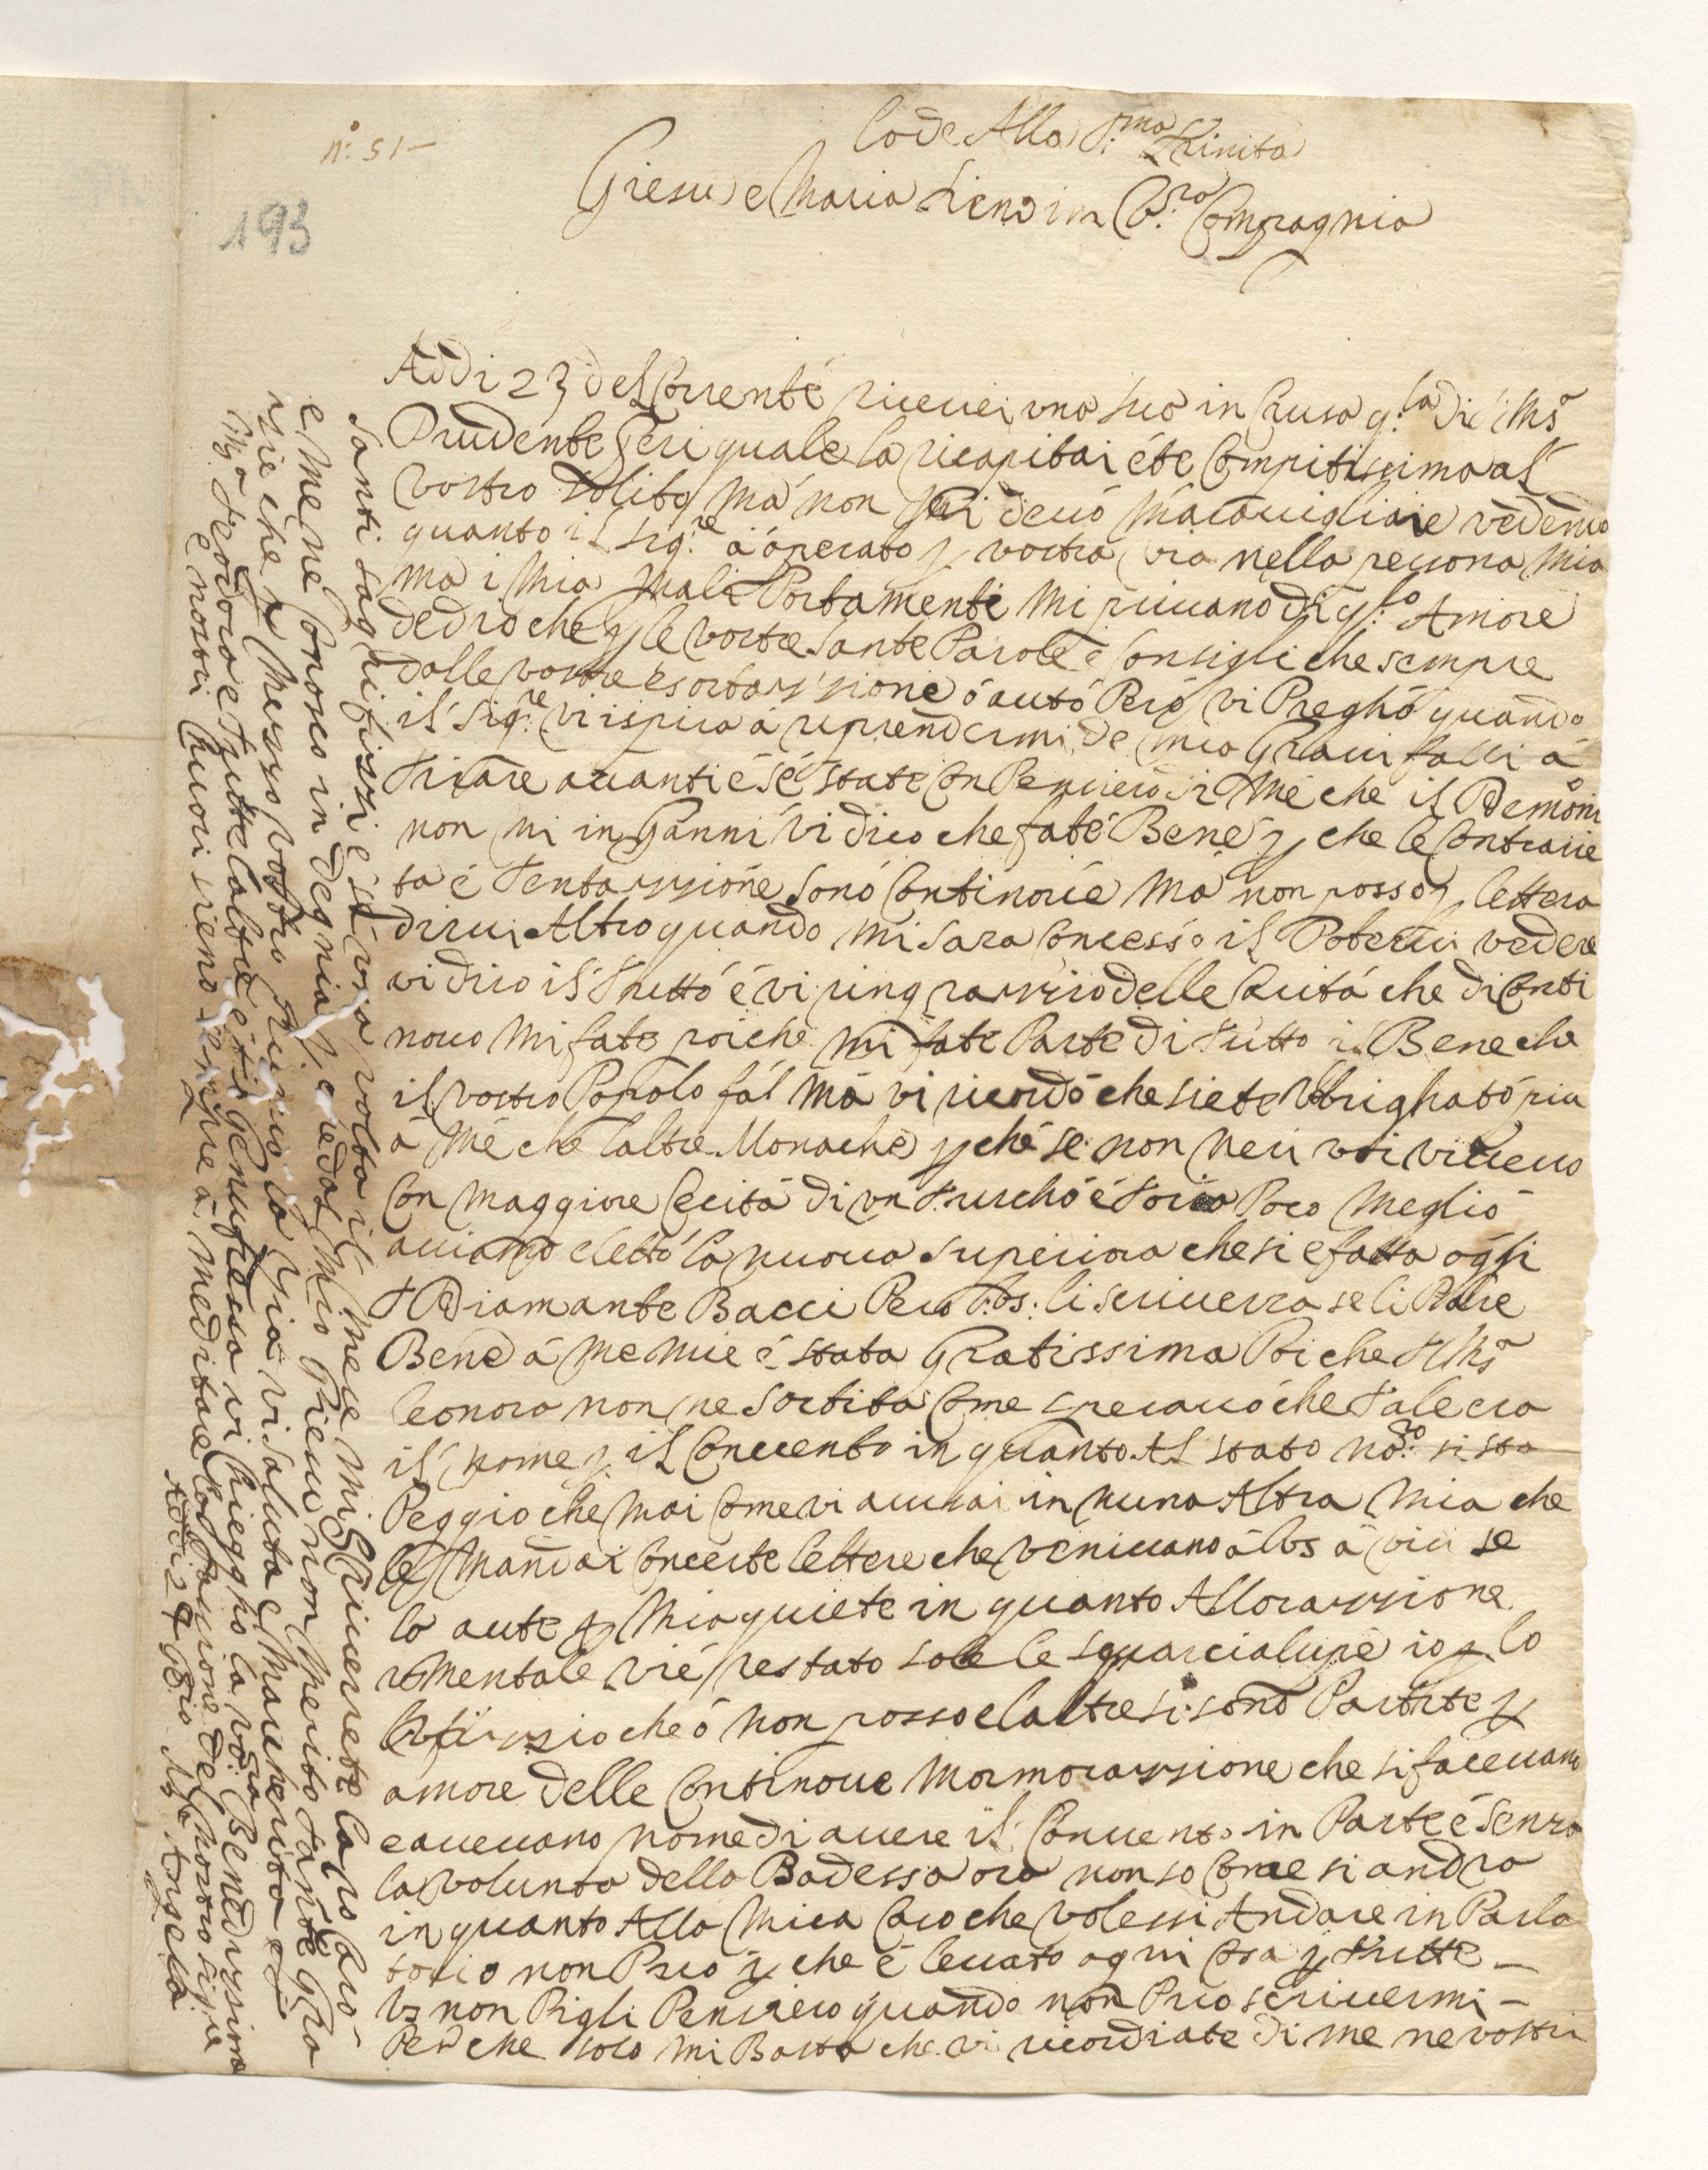 nº: 51-
193
Lode Alla S:ma Trinita
Giesu e Maria Sieno in V:sra Compagnia
Addi 23 del Corrente riceuei una sua in Crusa q:la di S Mã
Prudente Geri quale la ricapitai éte Compitissima al
vostro solito ma non mi deuo Marauigliare vedendo
quanto il Sig:re a óperato p vostra via nella persona Mia
ma i Mia Mali Portamente Mi priuano di q:lo Amore
de Dio che p le vostre Sante Parole e Consigli che sempre
dalle vostre esortazzione ó auto Peró vi Pregho quando
il Sig:re vi ispira á riprendermi de mia Graui falli á
Tirare auanti é sé state Con Penciero di Mé che il Demonio
non ui in Ganni vi dico che fate Bene p che le Contrarie
ta é Tentazzione sonó Continoue Ma non posso p lettera
dirui Altro quando Mi Sara Concesso il Poterui vedere
vi dico il Tuttó é vi ringrazzio delle Carità che di Conti
nouo Mi fate poiche Mi fate Parte di tutto il Bene che
il vostro Popolo fá Má vi ricordó che siete Vbrigható piu
á Mé che laltre Monache p ché se non Neri voi viueuo
Con Maggiore Cecità di un Turchó é Forsa Poco Meglió
auiamo eletto la nuoua Superiora che si e fatta oggi
S Diamante Bacci Pero Vs: li Scriuerra se li Pare
Bene á me mie é stata Gratissima Poi che S Mã
leonora non ne Sortita Come Sperauo che tale era
il nome p il Conuento in quanto Al stato no:ro si sta
Peggio che Mai Come vi auisai in nuna Altra Mia che
la Mandai Con certe lettere che veniuano á Vs á viu se
lo aute p Mia quiete in quanto Allorazzione
Mentale vié restato sole le squarcialupe io p lo
Vfizzio che ó non posso e laltre si sono Partite p
amore delle Continoue Mormorazzione che si faceuano
e aueuano nome di auere il Conuento in Parte é Senza
la volunta della Badessa ora non so Come si andra
in quanto Alla Mica Caro che volessi Andare in Parla
torio non Puo p che é leuato ogni Cosa p tutte
Vs non Pigli Penciero quando non Puo scriuermi
Perche solo Mi Basta che vi ricordiate di me ne vostri
Santi Sagrifizzi é sé una volta il Mese Mi Scriuerrete Caro Caro
e Me ne Conosco in degnia p che dal Mio Giesu non Merito tante Gra
zie che p Mezzo vostro riceuo la Zia vi saluta e Margherita e S
M:a Teodora e tutte laltre é tis Genuflessa vi Chieggho la vo:ra Benedizzione
é nostri Cuori sieno sempre á Meditare la Passione del Nostro Sig:re
Addi 27 Gbrio M:a Angela